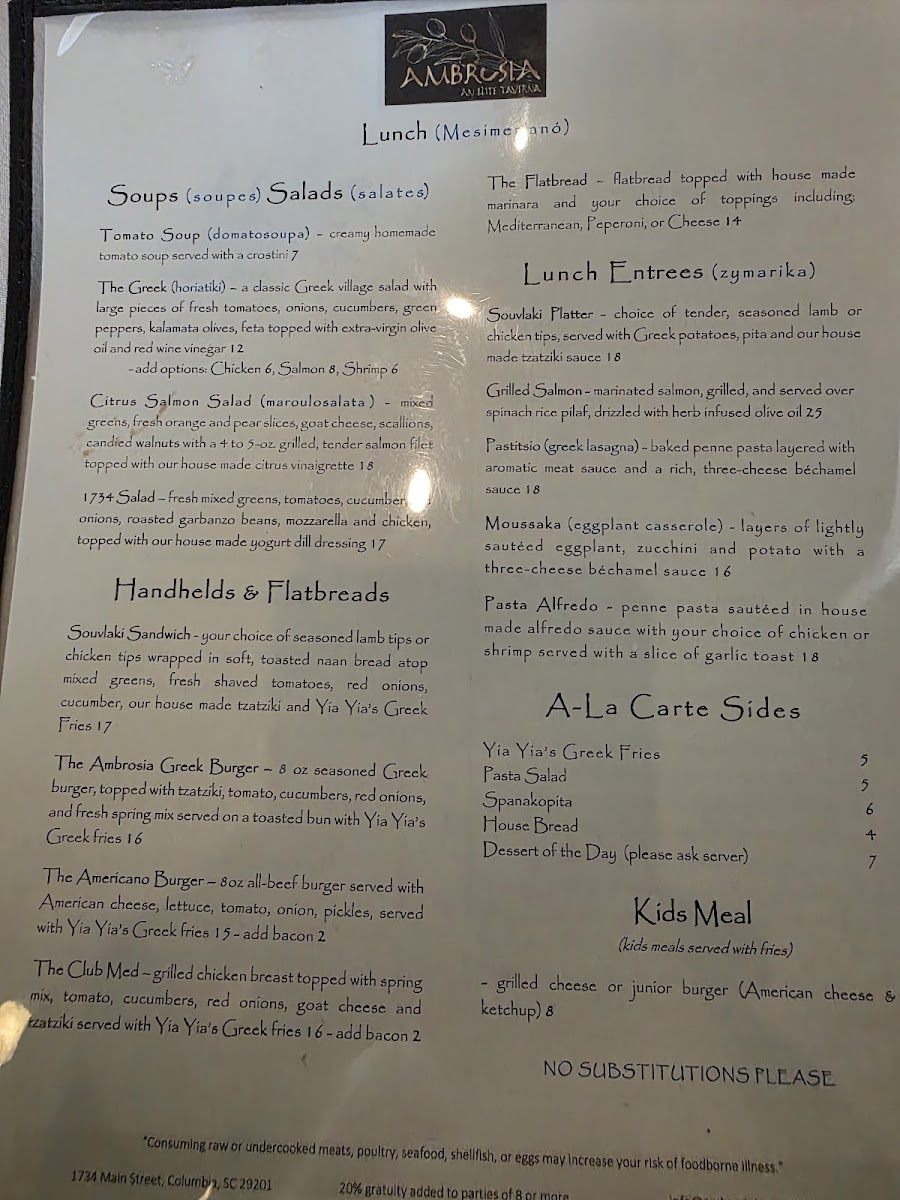 AMBROSIA
AN ELITE TAVERNA
Lunch (Mesimerianó)
Soups (soupes) Salads (salates)
Tomato Soup (domatosoupa) - creamy homemade
tomato soup served with a crostini 7
The Greek (horiatiki) – a classic Greek village salad with
large pieces of fresh tomatoes, onions, cucumbers, green
peppers, kalamata olives, feta topped with extra-virgin olive
oil and red wine vinegar 12
-add options: Chicken 6, Salmon 8, Shrimp 6
Citrus Salmon Salad (maroulosalata) - mixed
greens, fresh orange and pear slices, goat cheese, scallions,
candied walnuts with a 4 to 5-oz. grilled, tender salmon filet
topped with our house made citrus vinaigrette 18
1734 Salad – fresh mixed greens, tomatoes, cucumber
onions, roasted garbanzo beans, mozzarella and chicken,
topped with our house made yogurt dill dressing 17
Handhelds & Flatbreads
Souvlaki Sandwich - your choice of seasoned lamb tips or
chicken tips wrapped in soft, toasted naan bread atop
mixed greens, fresh shaved tomatoes, red onions,
cucumber, our house made tzatziki and Yia Yia's Greek
Fries 17
The Ambrosia Greek Burger – 8 oz seasoned Greek
burger, topped with tzatziki, tomato, cucumbers, red onions,
and fresh spring mix served on a toasted bun with Yia Yia's
Greek fries 16
The Americano Burger – 8oz all-beef burger served with
American cheese, lettuce, tomato, onion, pickles, served
with Yia Yia's Greek fries 15 - add bacon 2
The Club Med – grilled chicken breast topped with spring
mix, tomato, cucumbers, red onions, goat cheese and
tzatziki served with Yia Yia's Greek fries 16 - add bacon 2
The Flatbread – flatbread topped with house made
marinara and your choice of toppings including;
Mediterranean, Peperoni, or Cheese 14
Lunch Entrees (zymarika)
Souvlaki Platter - choice of tender, seasoned lamb or
chicken tips, served with Greek potatoes, pita and our house
made tzatziki sauce 18
Grilled Salmon - marinated salmon, grilled, and served over
spinach rice pilaf, drizzled with herb infused olive oil 25
Pastitsio (greek lasagna) - baked penne pasta layered with
aromatic meat sauce and a rich, three-cheese béchamel
sauce 18
Moussaka (eggplant casserole) - layers of lightly
sautéed eggplant, zucchini and potato with a
three-cheese béchamel sauce 16
Pasta Alfredo - penne pasta sautéed in house
made alfredo sauce with your choice of chicken or
shrimp served with a slice of garlic toast 18
A-La Carte Sides
Yia Yia's Greek Fries 5
Pasta Salad 5
Spanakopita 6
House Bread 4
Dessert of the Day (please ask server) 7
Kids Meal
(kids meals served with fries)
- grilled cheese or junior burger (American cheese &
ketchup) 8
NO SUBSTITUTIONS PLEASE
"Consuming raw or undercooked meats, poultry, seafood, shellfish, or eggs may increase your risk of foodborne illness."
1734 Main Street, Columbia, SC 29201 20% gratuity added to parties of 8 or more